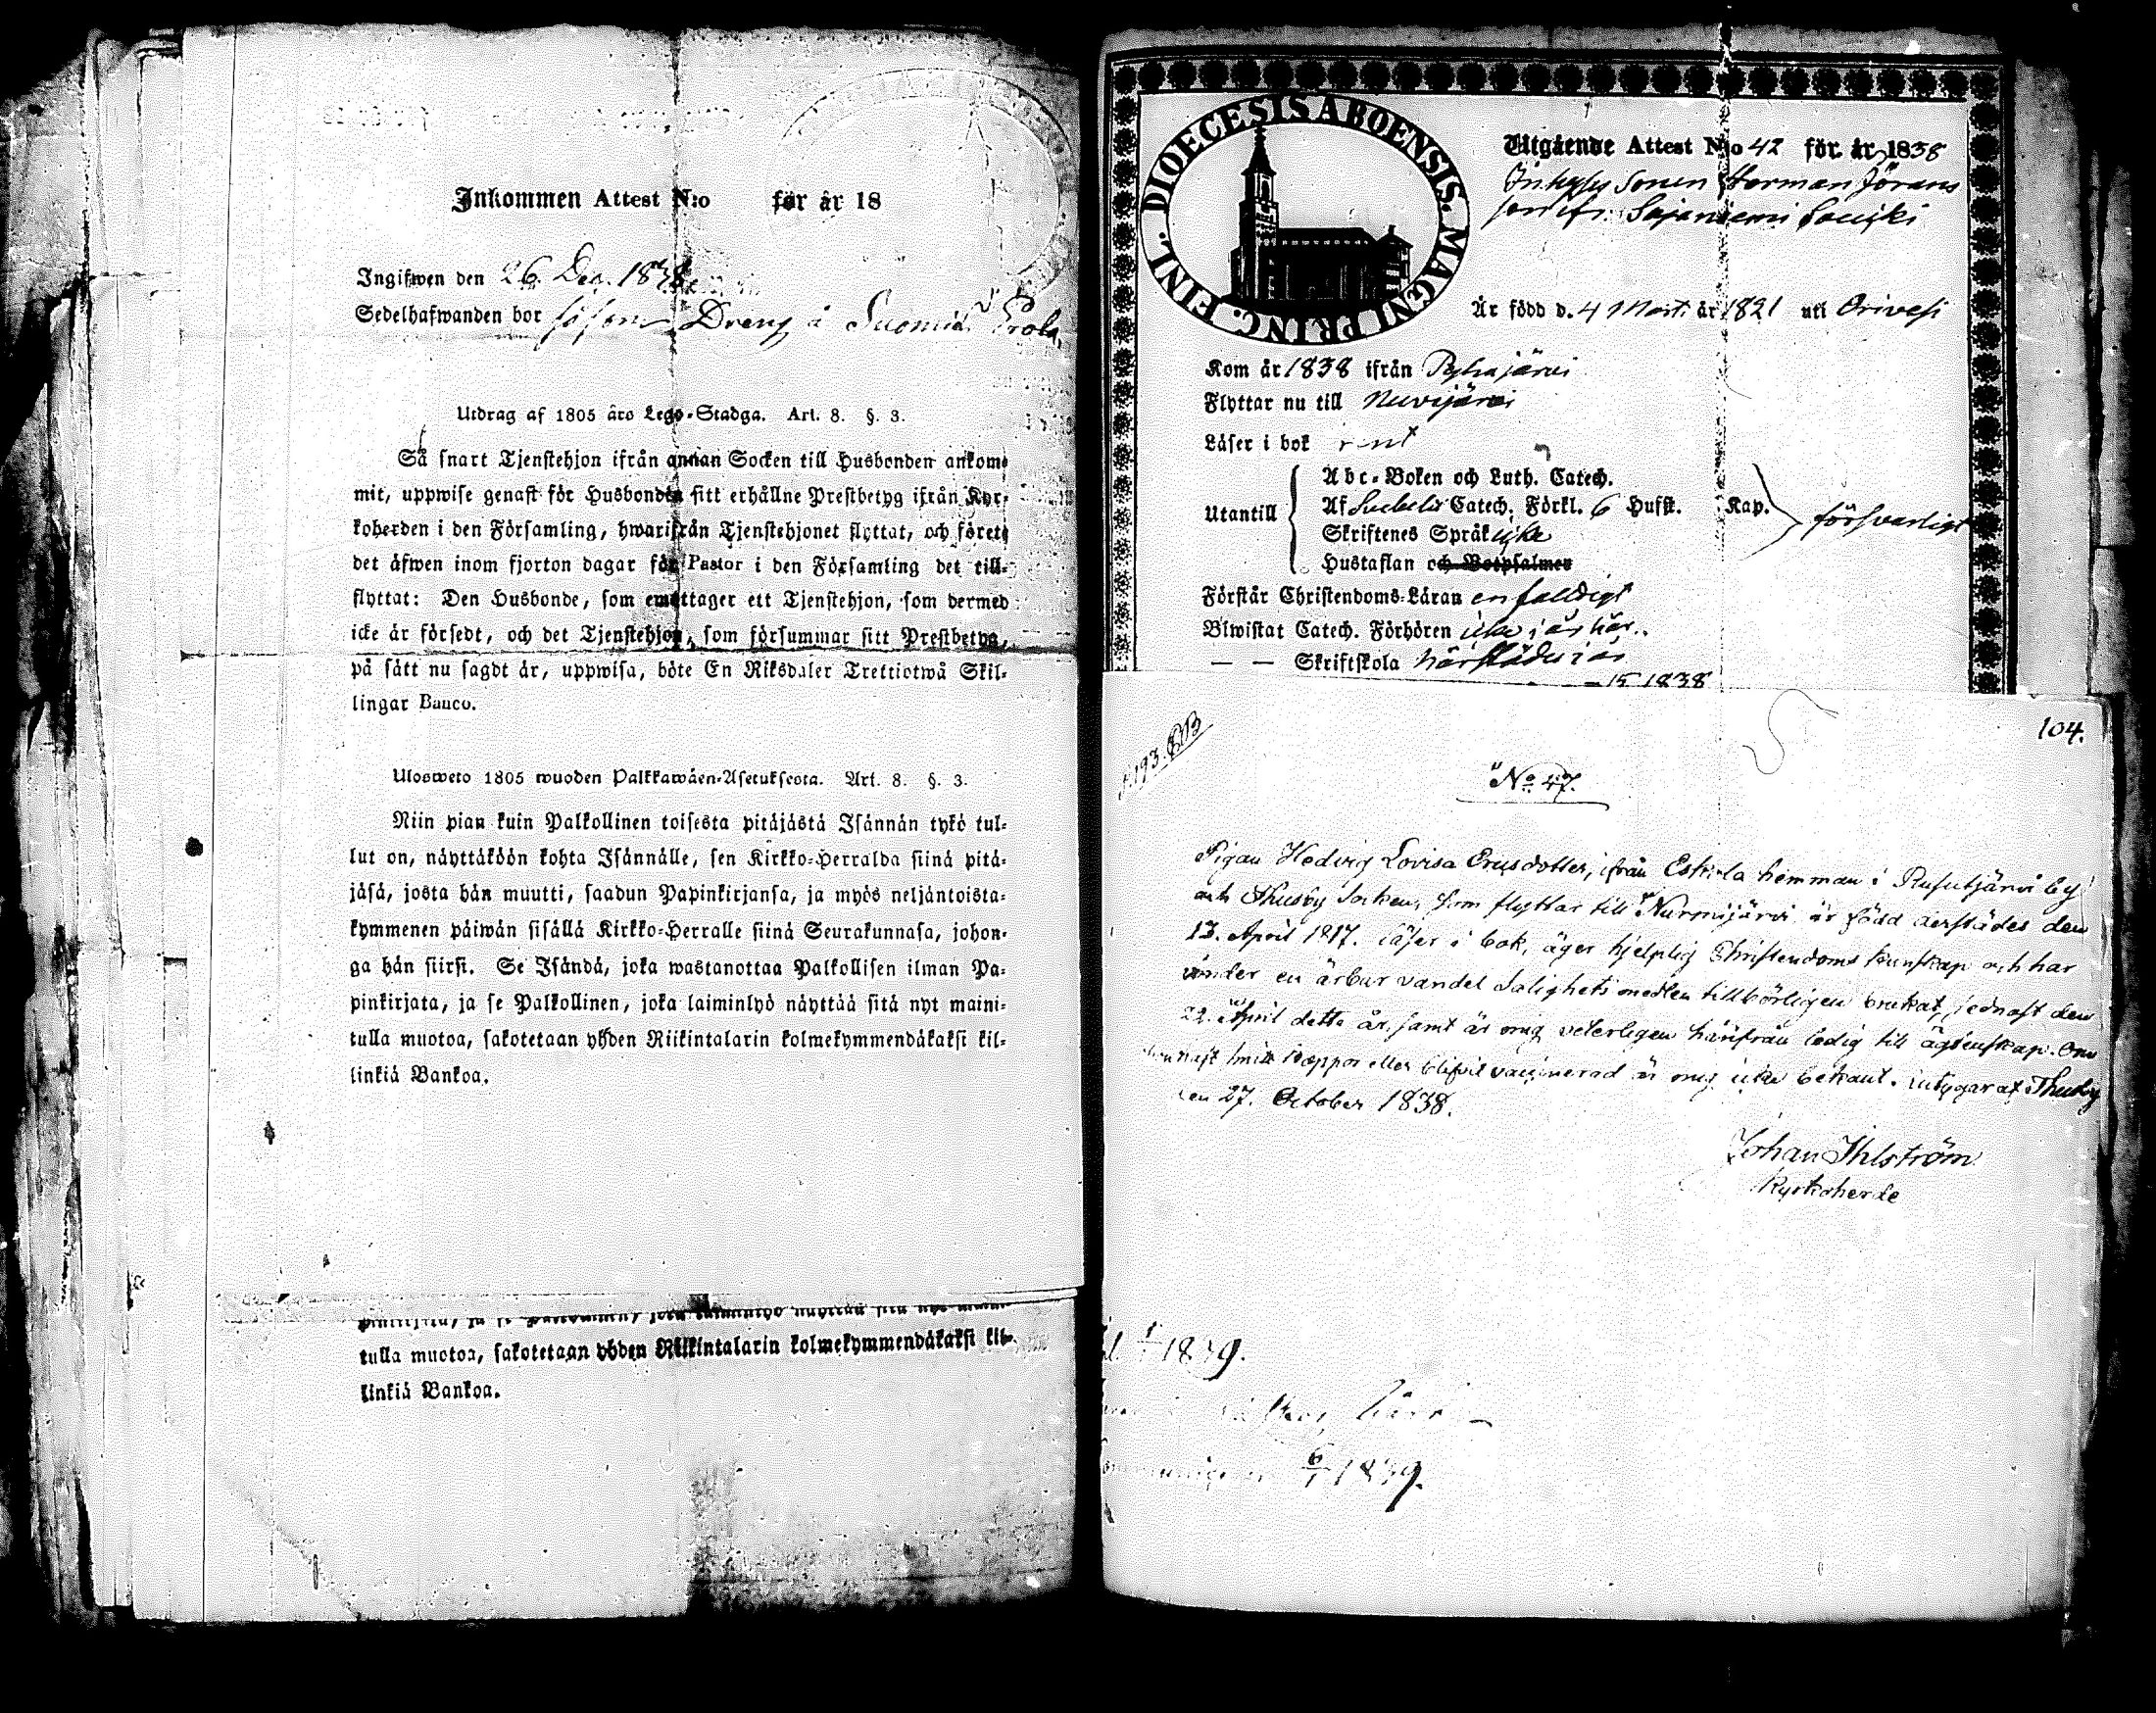 Inkommen Attest N:o för år 18
Ingifwen den 26 Dec. 1838
Sedelhafwanden bor såsom Dreng å
Utdrag af 1805 års Lego-Stadga. Art. 8. §. 3.
Så snart Tjenstehjon ifrån annan Socken till Husbonden ankom-
mit, uppwise genast för Husbonden sitt erhållne Prestbetyg ifrån Kyr-
koherden i den Församling, hwarifrån Tjenstehjonet flyttat, och förete
det äfwen inom fjorton dagar för Pastor i den Församling det till-
flyttat: Den Husbonde, som emottager ett Tjenstehjon, som dermed
icke är försedt, och det Tjenstehjon, som försummar sitt Prestbetyg,
på sätt nu sagdt är, uppwisa, böte En Riksdaler Trettiotwå Skil-
lingar Banco.
Ulosweto 1805 wuoden Palkkawäen-Asetuksesta. Art. 8. §. 3.
Niin pian kuin Palkollinen toisesta pitäjästä Isännän tykö tul-
lut on, näyttäköön kohta Isännälle, sen Kirkko-Herralda siinä pitä-
jäsä, josta hän muutti, saadun Papinkirjansa, ja myös neljäntoista-
kymmenen päiwän sisällä Kirkko-Herralle siinä Seurakunnasa, johon-
ga hän siirsi. Se Isändä, joka wastanottaa Palkollisen ilman Pa-
pinkirjata, ja se Palkollinen, joka laiminlyö näyttää sitä nyt maini-
tulla muotoa, sakotetaan yhden Riikintalarin kolmekymmendäkaksi kil-
linkiä Bankoa.
pinkirjata, ja se Palkollinen, joka laiminlyö näyttää sitä nyt maini-
tulla muotoa, sakotetaan yhden Riikintalarin kolmekymmendäkaksi kil-
linkiä Bankoa.
DIOECESIS ABOENSIS. MAGNI PRINC. FINL.
Utgående Attest N:o 42 för år 1838
Inhyses Sonen Herman Jörans
son ifr.
Är född d. 4 Mart. år 1821 uti Orivesi
Kom år 1838 ifrån Pyhajärvi
Flyttar nu till
Läser i bok rent
Utantill
Abc-Boken och Luth. Catech.
Af Svebelii Catech. Förkl. 6 Hufst. Kap.
Skriftenes Språk icke
Hustaflan och Botpsalmer
försvarligt
Förstår Christendoms-Läran enfaldigt
Biwistat Catech. Förhören icke i år här.
— — Skriftskola härstädes i år
15 1838
193.
104.
No 47.
Pigan Hedvig Lovisa Ericsdotter, ifrån Eskola hemman i Rusutjärvi by
och Thusby Socken, som flyttar till Nurmijärvi är född derstädes den
13. April 1817. läser i bok, äger hjelplig Christendoms kunskap och har
under en ärbar vandel Salighets medlen tillbörligen brukat, sednast den
22. April detta år, samt är mig veterligen härifrån ledig till ägtenskap. Om
hon haft smitt koppor eller blifvit vaccinerad är mig icke bekant. intygar af Thusby
den 27. October 1838.
Johan Ihlström
Kyrkoherde
1839.
1839.